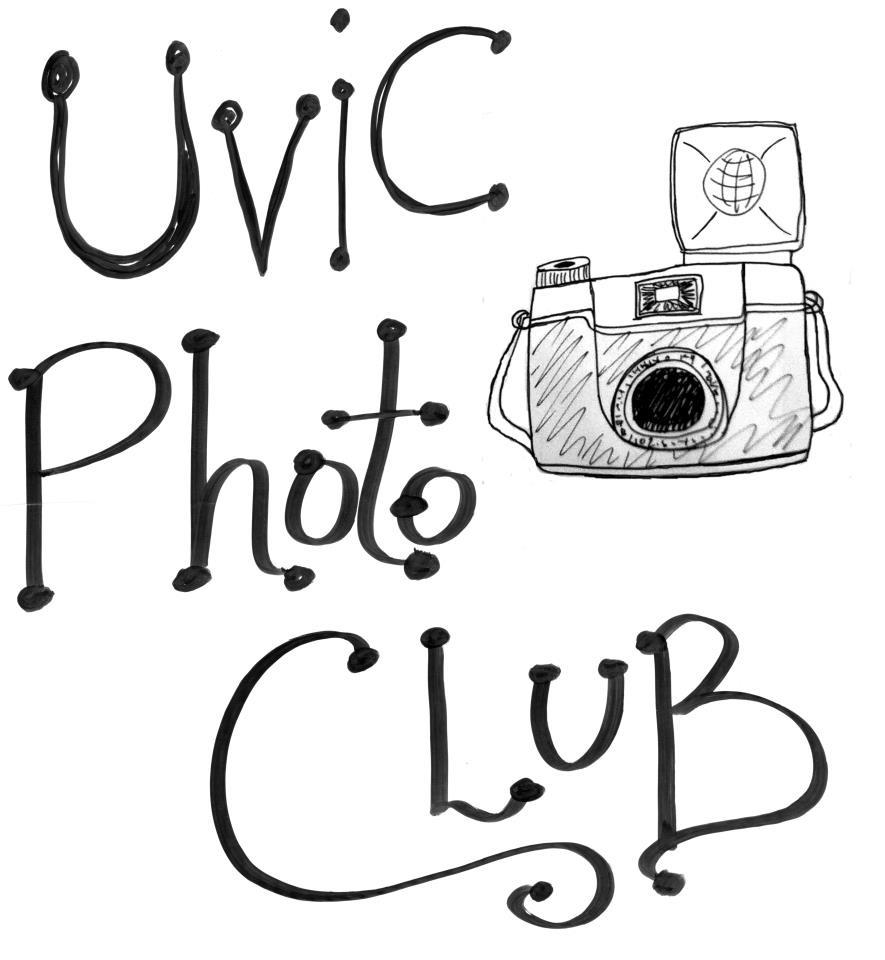 UviC
Photo
CLuB